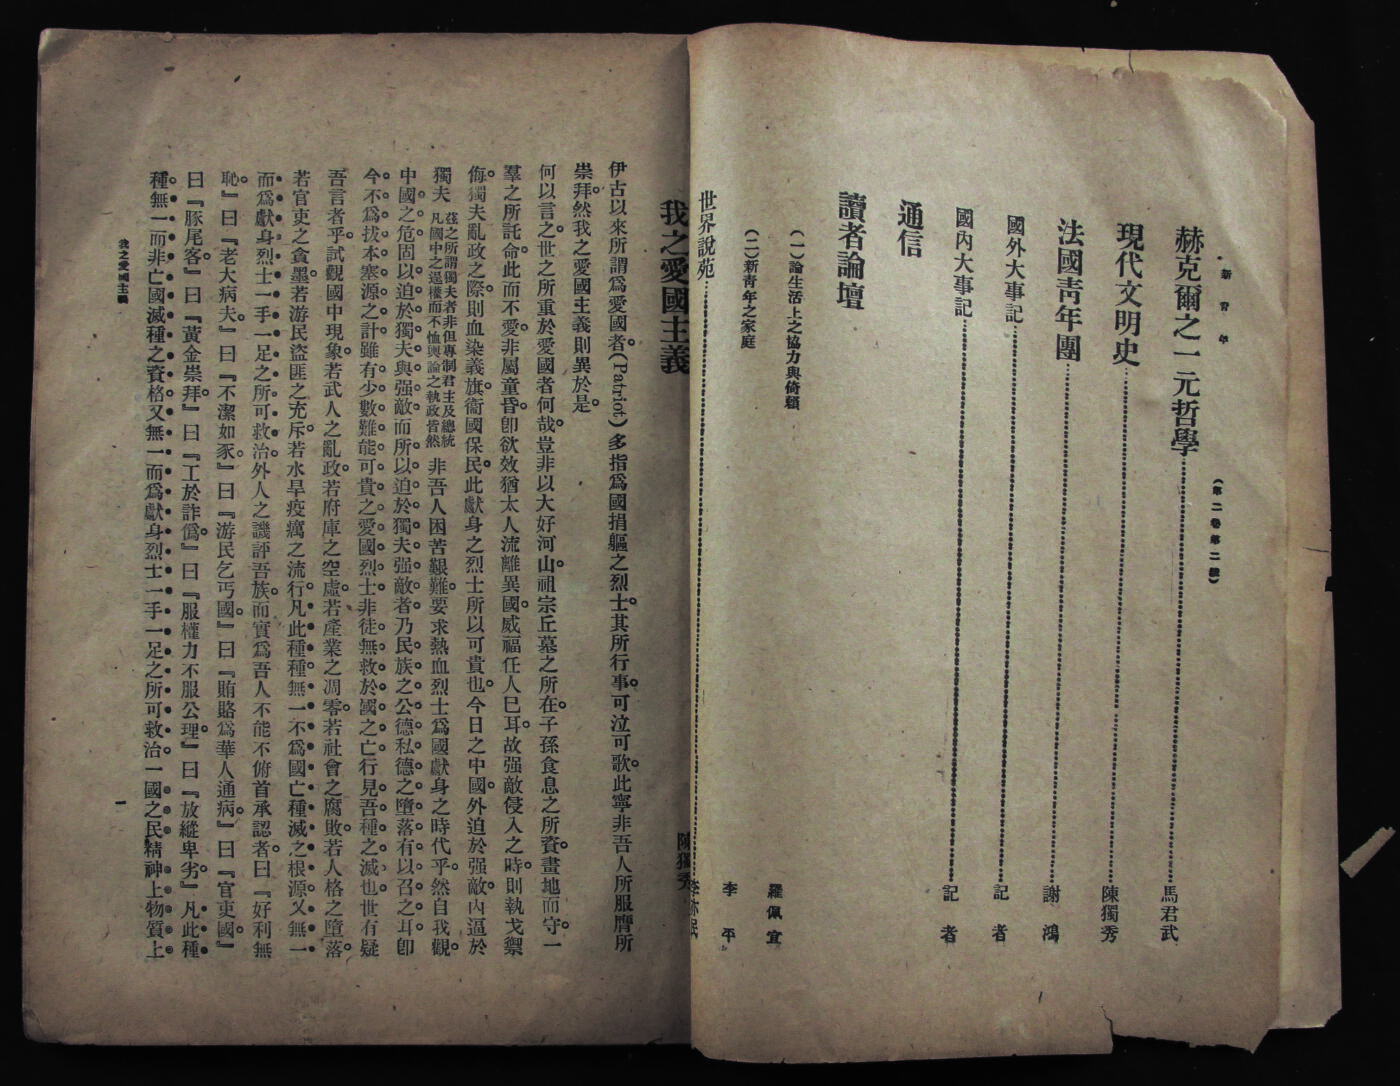 新青年
(第二卷第二號)
赫克爾之一元哲學……馬君武
現代文明史……陳獨秀
法國青年團……謝鴻
國外大事記……記者
國內大事記……記者
通信
讀者論壇
(一)論生活上之協力與倚賴 羅佩宜
(二)新青年之家庭 李平
世界說苑……李亦民
我之愛國主義
陳獨秀
伊古以來所謂爲愛國者(Patriot)多指爲國捐軀之烈士其所行事可泣可歌此寧非吾人所服膺所
崇拜然我之愛國主義則異於是。
何以言之世之所重於愛國者何哉豈非以大好河山祖宗丘墓之所在子孫食息之所資畫地而守一
羣之所託命此而不愛非屬童昏卽欲效猶太人流離異國威福任人已耳故强敵侵入之時則執戈禦
侮獨夫亂政之際則血染義旗衞國保民此獻身之烈士所以可貴也今日之中國外迫於强敵內逼於
獨夫 茲之所謂獨夫者非但專制君主及總統凡國中之逞權而不恤輿論之執政皆然 非吾人困苦艱難要求熱血烈士爲國獻身之時代乎然自我觀
中國之危固以迫於獨夫與强敵而所以迫於獨夫强敵者乃民族之公德私德之墮落有以召之耳卽
今不爲拔本塞源之計雖有少數難能可貴之愛國烈士非徒無救於國之亡行見吾種之滅也世有疑
吾言者乎試觀國中現象若武人之亂政若府庫之空虛若產業之凋零若社會之腐敗若人格之墮落
若官吏之貪墨若游民盜匪之充斥若水旱疫癘之流行凡此種種無一不爲國亡種滅之根源又無一
而爲獻身烈士一手一足之所可救治外人之譏評吾族而實爲吾人不能不俯首承認者曰『好利無
恥』曰『老大病夫』曰『不潔如豕』曰『游民乞丐國』曰『賄賂爲華人通病』曰『官吏國』
曰『豚尾客』曰『黃金崇拜』曰『工於詐僞』曰『服權力不服公理』曰『放縱卑劣』凡此種
種無一而非亡國滅種之資格又無一而爲獻身烈士一手一足之所可救治一國之民精神上物質上
我之愛國主義
一